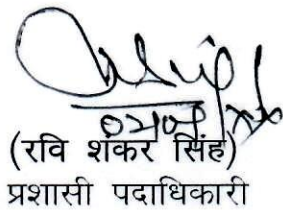 (रवि शंकर सिंह)
प्रशासी पदाधिकारी